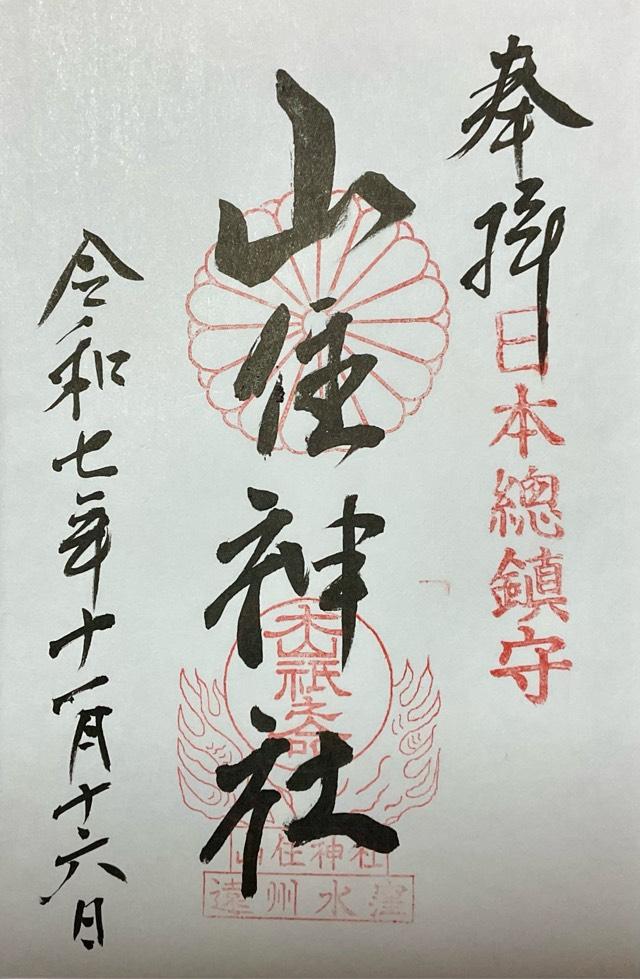 奉拝
日本總鎮守
山住神社
大山祇之命
山住神社
遠州水窪
令和七年十一月十六日